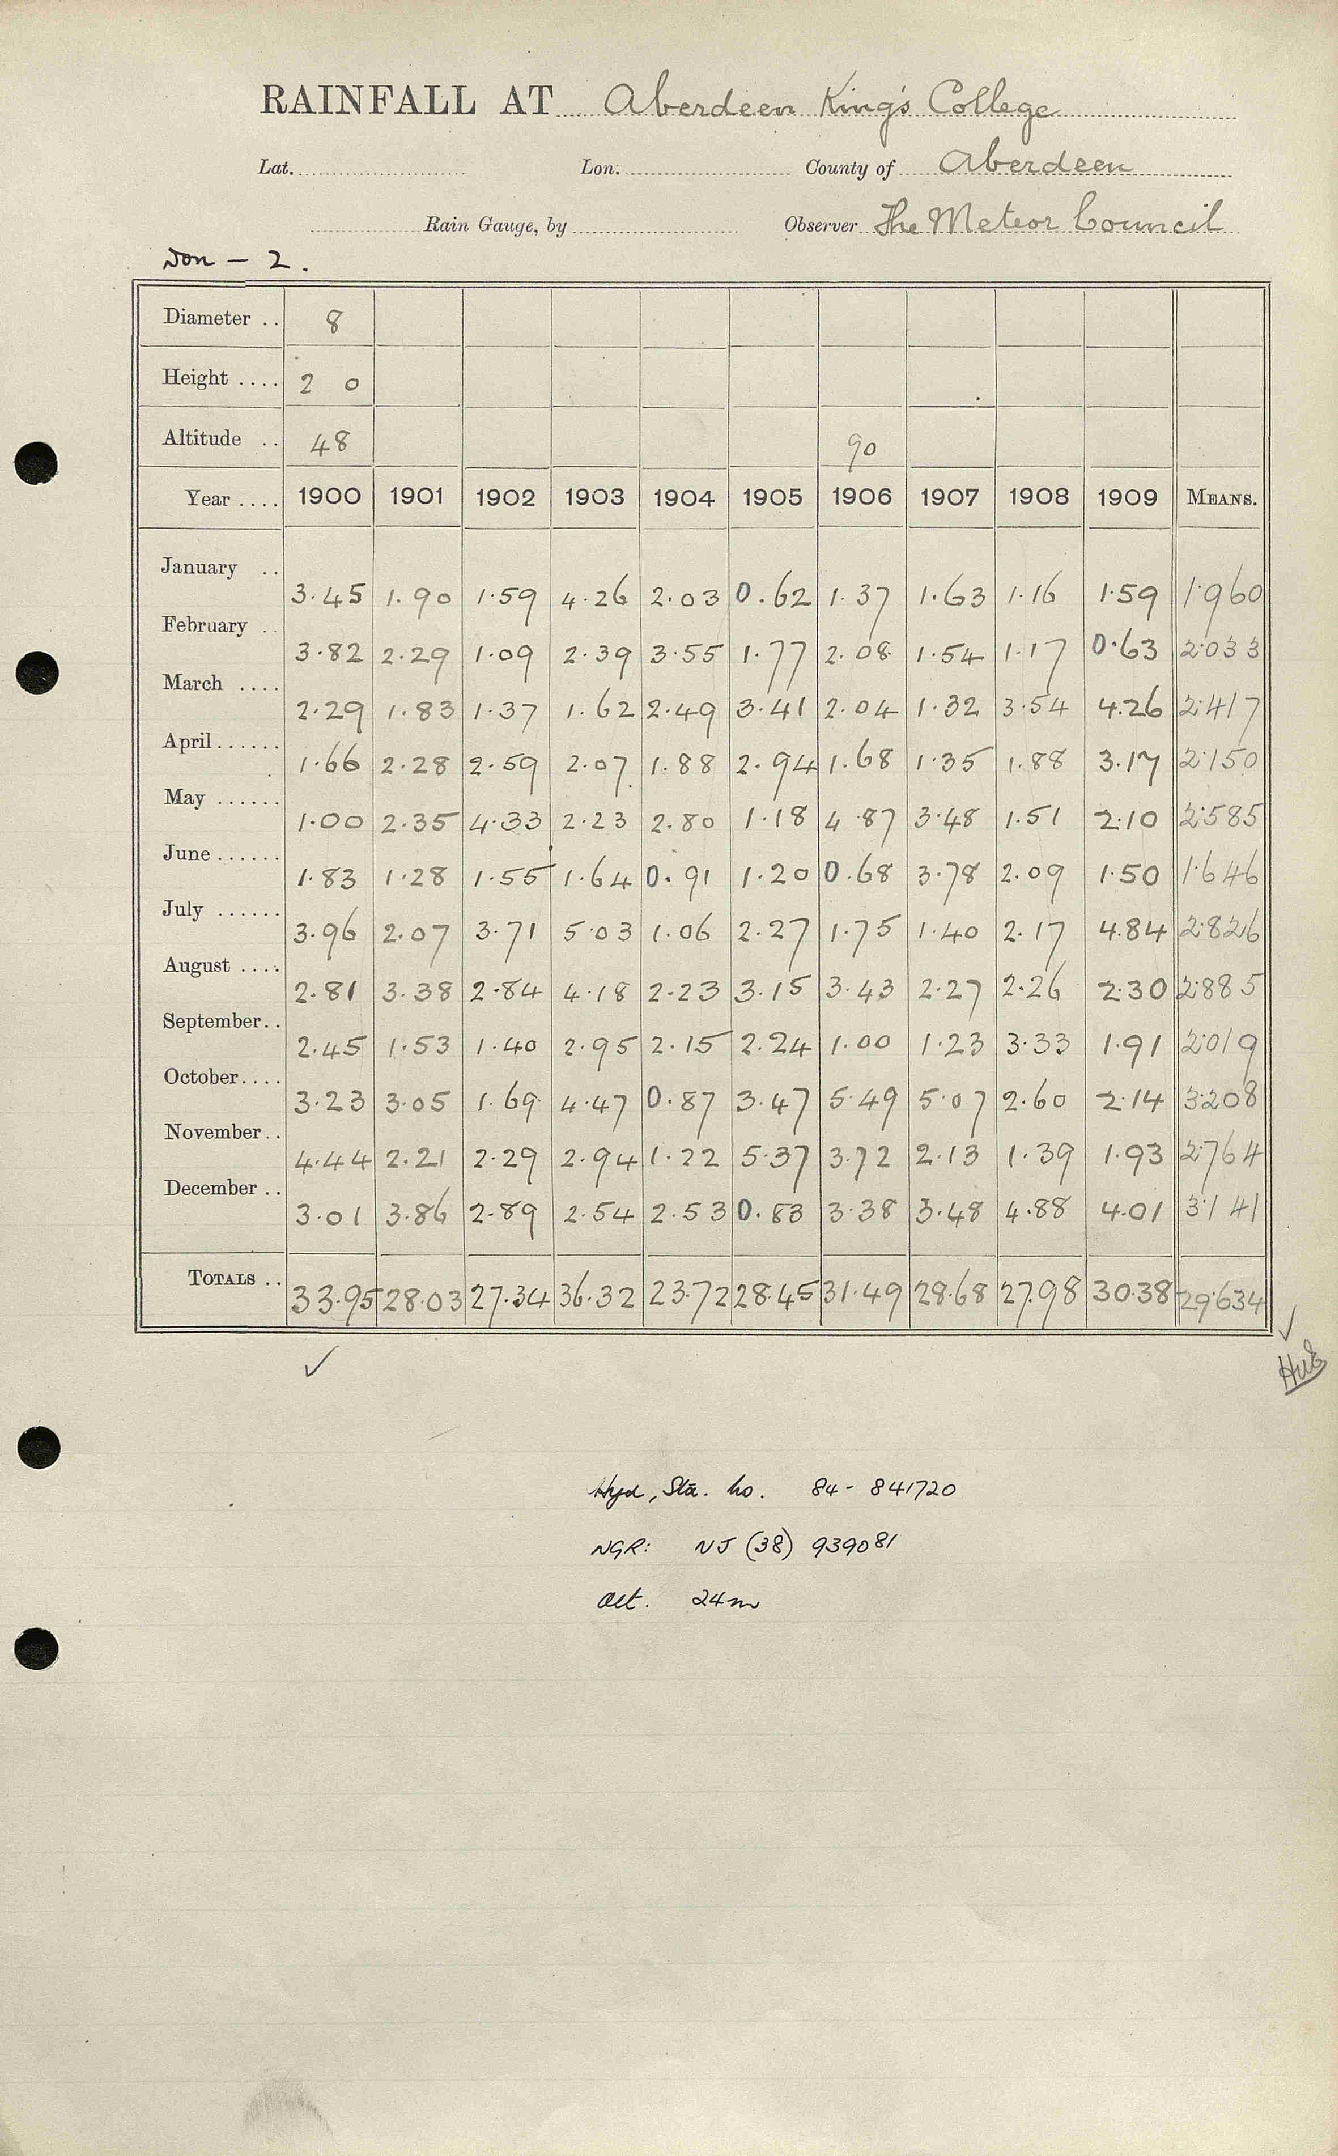 RAINFALL AT Aberdeen King's College
Lat. Lon. County of Aberdeen
Rain Gauge, by Observer The Meteor Council
Don - 2.
Diameter .. 8
Height .... 2 0
Altitude .. 48 90
Year .... 1900 1901 1902 1903 1904 1905 1906 1907 1908 1909 MEANS.
January .. 3.45 1.90 1.59 4.26 2.03 0.62 1.37 1.63 1.16 1.59 1.960
February .. 3.82 2.29 1.09 2.39 3.55 1.77 2.08 1.54 1.17 0.63 2.033
March .... 2.29 1.83 1.37 1.62 2.49 3.41 2.04 1.32 3.54 4.26 2.417
April...... 1.66 2.28 2.59 2.07 1.88 2.94 1.68 1.35 1.88 3.17 2.150
May ...... 1.00 2.35 4.33 2.23 2.80 1.18 4.87 3.48 1.51 2.10 2.585
June...... 1.83 1.28 1.55 1.64 0.91 1.20 0.68 3.78 2.09 1.50 1.646
July ...... 3.96 2.07 3.71 5.03 1.06 2.27 1.75 1.40 2.17 4.84 2.826
August .... 2.81 3.38 2.84 4.18 2.23 3.15 3.43 2.27 2.26 2.30 2.885
September.. 2.45 1.53 1.40 2.95 2.15 2.24 1.00 1.23 3.33 1.91 2.019
October.... 3.23 3.05 1.69 4.47 0.87 3.47 5.49 5.07 2.60 2.14 3.208
November.. 4.44 2.21 2.29 2.94 1.22 5.37 3.72 2.13 1.39 1.93 2.764
December .. 3.01 3.86 2.89 2.54 2.53 0.83 3.38 3.48 4.88 4.01 3.141
TOTALS .. 33.95 28.03 27.34 36.32 23.72 28.45 31.49 28.68 27.98 30.38 29.634
Hyd, Sta. No. 84 - 841720
NGR: NJ (38) 939081
Alt. 24m